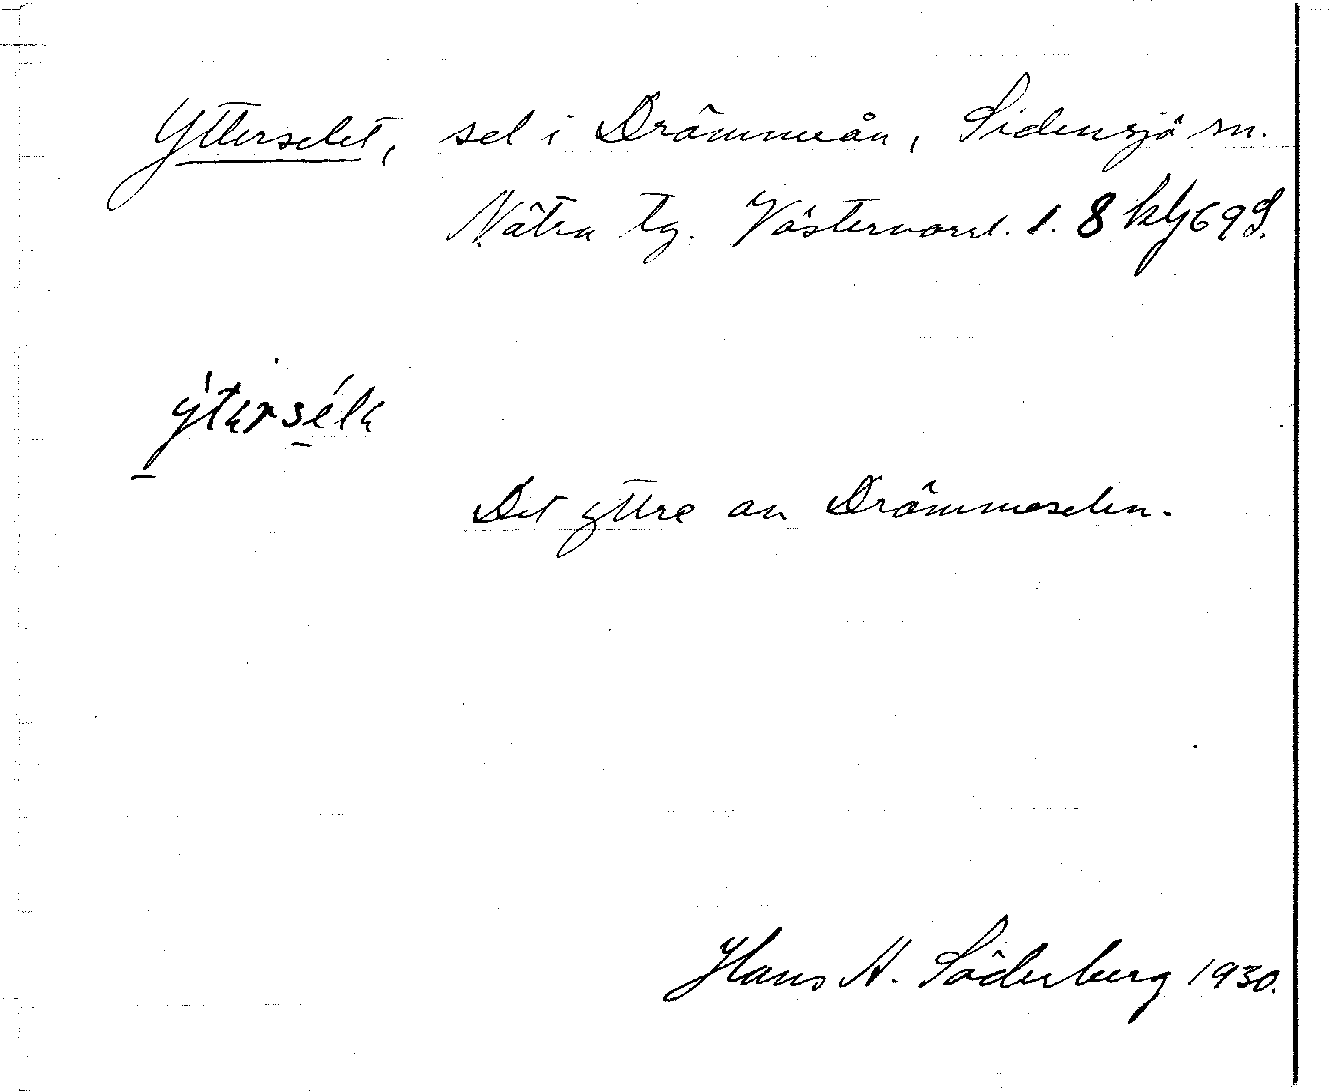 Ytterselet, sel i Drömmeån, Sidensjö sn.
Nätra tg. Västernorrl. l. 8 h1j69g.
ýtɩrséla
Det yttre av Drömmeselen.
Hans A. Söderberg 1930.